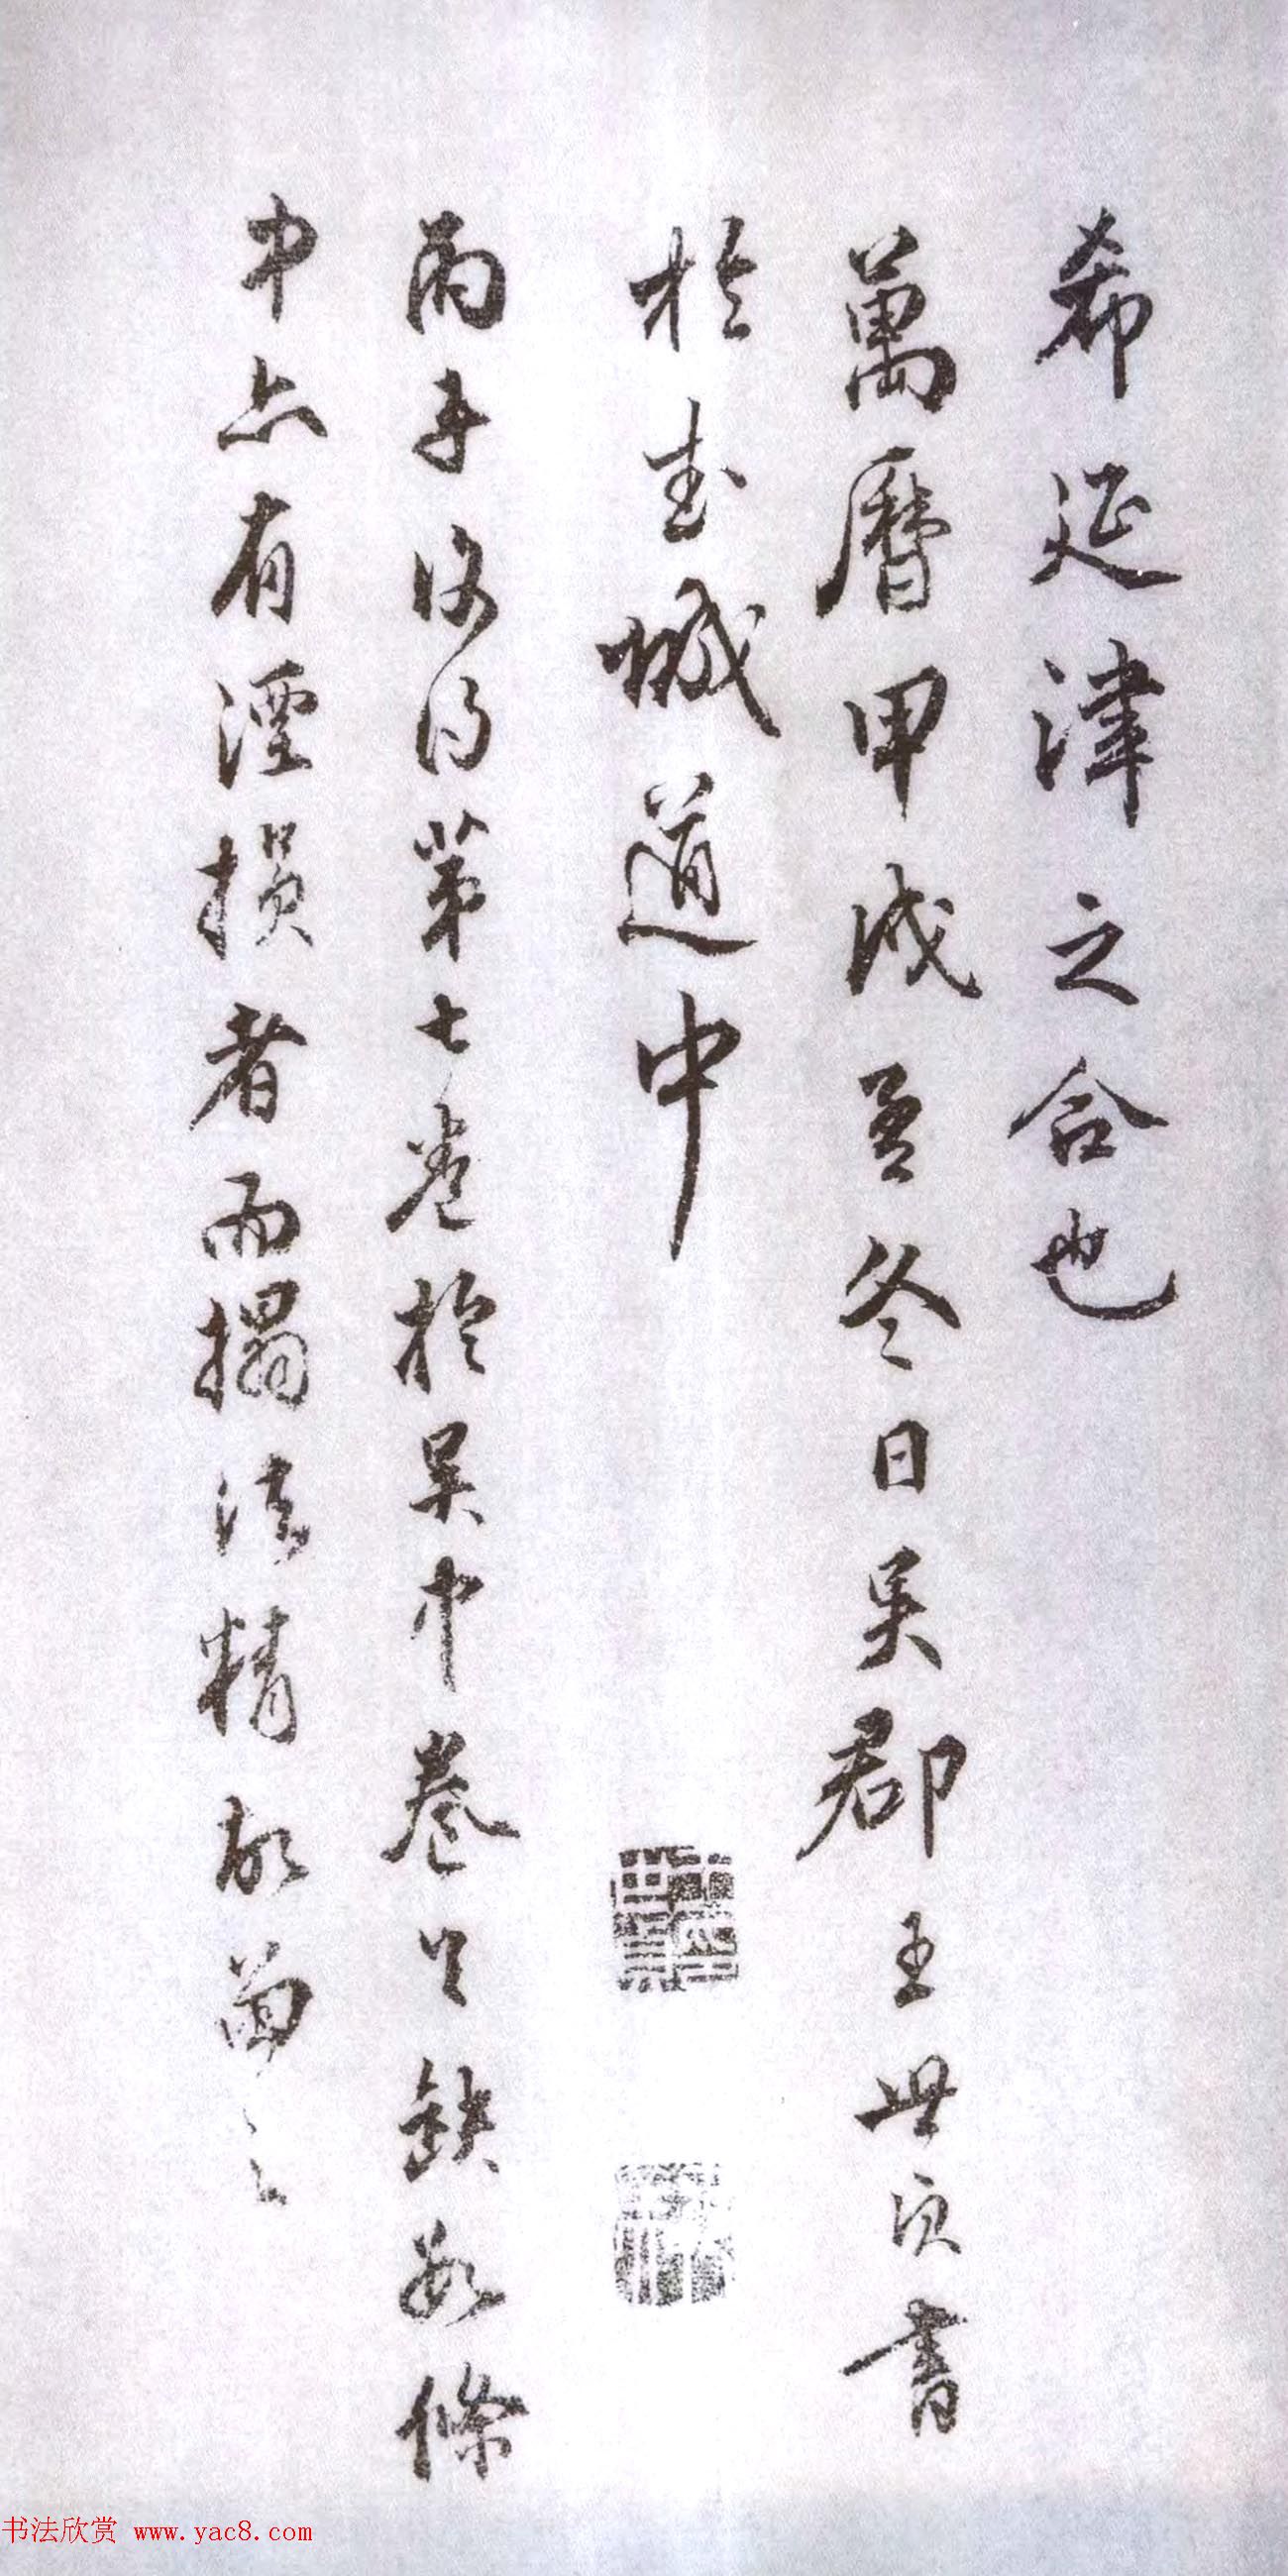 希延津之合也
萬曆甲戌孟冬日吳郡王世貞書
於武城道中
丙子復得第七卷於吳中卷尾缺數條
中亦有湮損者而搨法精故留之
书法欣赏 www.yac8.com